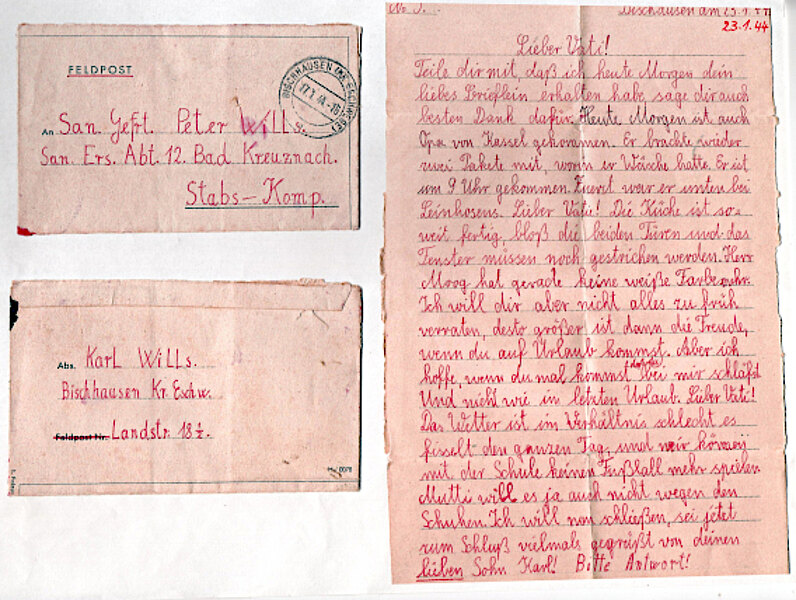 FELDPOST
BISCHHAUSEN
17.1.44.-16
An San. Gefrt. Peter Wills.
San. Ers. Abt. 12. Bad Kreuznach.
Stabs-Komp.
Abs. Karl Wills.
Bischhausen Kr. Eschw.
Feldpost Nr. Landstr. 18½.
0078
Bischhausen am 23.1.44
23.1.44
Lieber Vati!
Teile dir mit, daß ich heute Morgen dein
liebes Brieflein erhalten habe, sage dir auch
besten Dank dafür. Heute Morgen ist auch
Opa von Kassel gekommen. Er brachte wieder
zwei Pakete mit, worin er Wäsche hatte. Er ist
um 9 Uhr gekommen. Zuerst war er unten bei
Leinhosens. Lieber Vati! Die Küche ist so-
weit fertig, bloß die beiden Türen und das
Fenster müssen noch gestrichen werden. Herr
Moog hat gerade keine weiße Farbe mehr.
Ich will dir aber nicht alles zu früh
verraten, desto größer ist dann die Freude,
wenn du auf Urlaub kommst. Aber ich
hoffe, wenn du mal kommst bei mir schläfst
Und nicht wie im letzten Urlaub. Lieber Vati!
Das Wetter ist im Verhältnis schlecht es
fisselt den ganzen Tag, und wir können
mit der Schule keinen Fußball mehr spielen
Mutti will es ja auch nicht wegen den
Schuhen. Ich will nun schließen, sei jetzt
zum Schluß vielmals gegrüßt von deinen
lieben Sohn Karl! Bitte Antwort!